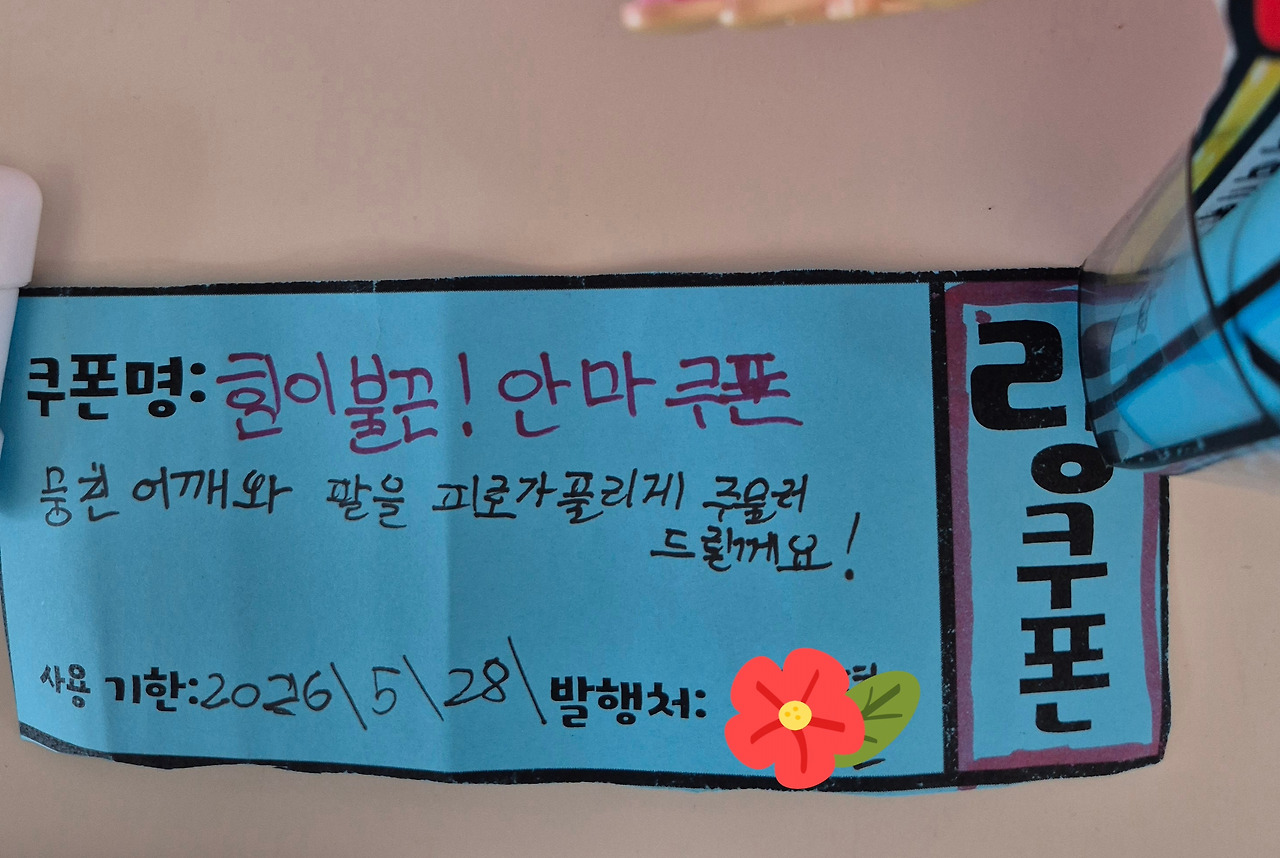 쿠폰명: 힘이불끈! 안마쿠폰
뭉친 어깨와 팔을 피로가풀리게 주물러
드릴께요!
사용 기한:2026\5\28\ 발행처:
링쿠폰